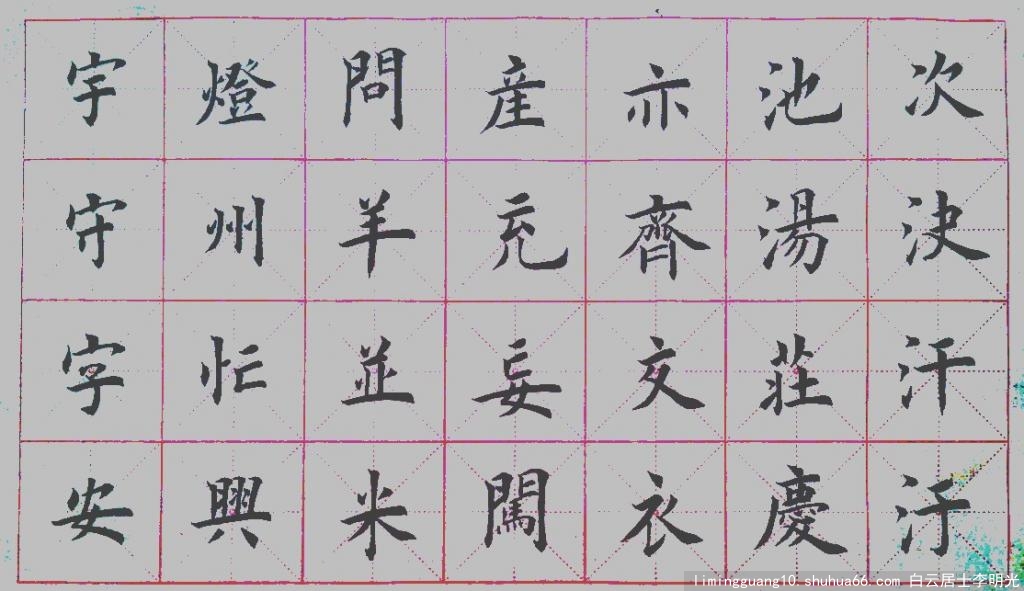 次決汗汙
池湯莊慶
亦齊文衣
産充妄闖
問羊並米
燈州忙興
宇守字安
limingguang10.shuhua66.com 白云居士李明光